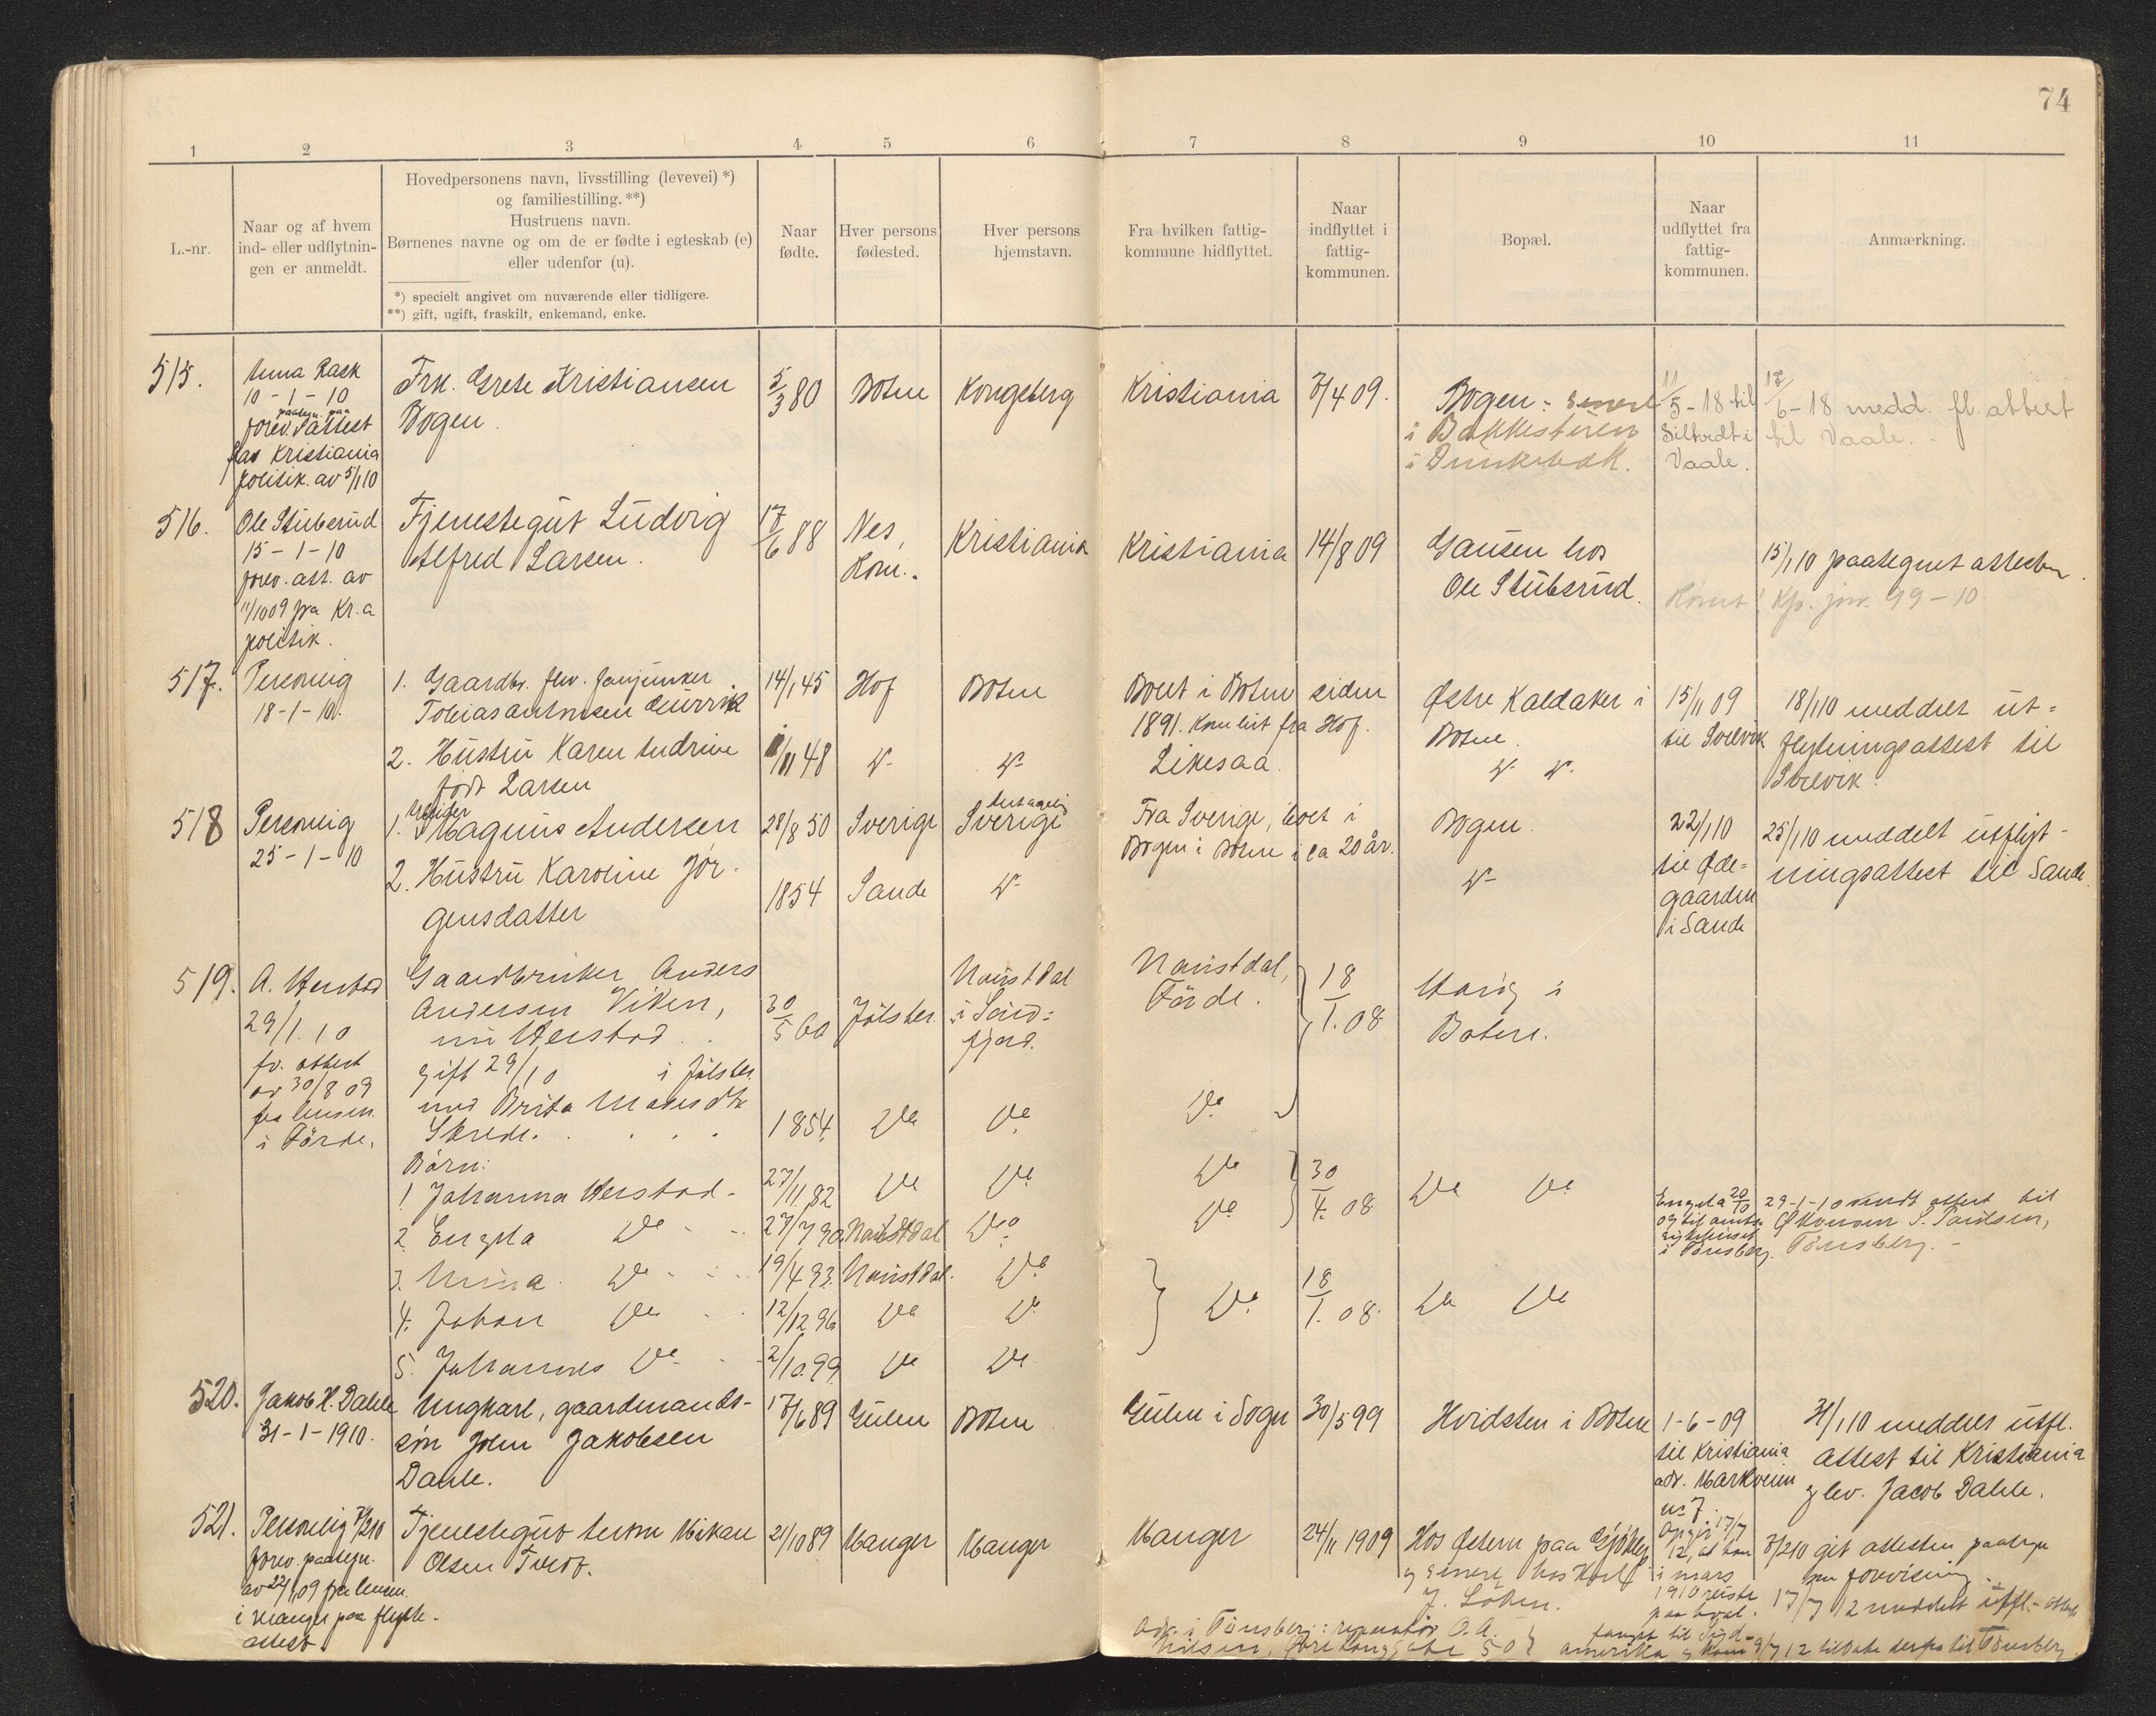 74
1 2 3 4 5 6 7 8 9 10 11
L.-nr.
Naar og af hvem
ind- eller udflytnin-
gen er anmeldt.
Hovedpersonens navn, livsstilling (levevei) *)
og familiestilling. **)
Hustruens navn.
Børnenes navne og om de er fødte i egteskab (e)
eller udenfor (u).
*) specielt angivet om nuværende eller tidligere.
**) gift, ugift, fraskilt, enkemand, enke.
Naar
fødte.
Hver persons
fødested.
Hver persons
hjemstavn.
Fra hvilken fattig-
kommune hidflyttet.
Naar
indflyttet i
fattig-
kommunen.
Bopæl.
Naar
udflyttet fra
fattig-
kommunen.
Anmærkning.
515.
Rask
10-1-10
paategn. paa
forev. attest
fra Kristiania
politik. av 5/1 10
Frk. Grete Kristiansen
Bogen
5/3 80
Botne
Kongsberg
Kristiania
Bogen: senere
i Bakkestuen
11/5-18 til
i
Vaale.
6-18 medd. fl. attest
til Vaale.
516.
Ole Stuberud
15-1-10
forev. att. av
11/10 09 fra Kr.a
politik.
Tjenestegut Ludvig
Alfred Larsen.
88
Nes,
Rom.
Kristiania
Kristiania
14/8 09
Gausen hos
Ole Stuberud.
15/1 10 paategnet attesten.
Kp. jnr. 99-10
517.
Personlig
18-1-10.
1. Gaardbr. flv.
Tobias Antonsen
14/1 45
Hof
Botne
Boet i Botne siden
1891. Kom hit fra Hof.
Østre Kaldaker i
Botne.
15/11 09
til Svelvik
18/1 10 meddelt ut-
flytningsattest til
Svelvik
2. Hustru Karen Andrine
født Larsen
48
Likesaa
518
Personlig
25-1-10
1. Arbeider
Magnus Andersen
28/8 50
Sverige
Sverige
Fra Sverige, boet i
Bogen i Botne i ca 20 år.
Bogen
22/1 10
til Øde-
gaarden
i Sande
25/1 10 meddelt utflyt-
ningsattest til Sande.
2. Hustru Karoline Jör-
gensdatter
1854
Sande
519.
A. Herstad
29/1. 10
fv. attest
av 30/8 09
fra lensm.
i Förde.
Gaardbruker Anders
Andersen Viken,
nu Herstad
gift 29/1 10 i Jölster
med Brita
Skrede.
30/5 60
Jölster
Naustdal
i Sönd-
fjord.
Naustdal,
Förde.
18/1. 08
i
Botne.
1854.
Do
Do
Do
Börn:
1 Johanna Herstad
27/11. 82
Do
Do
Do
30/4. 08
Do Do
2. Engela Do
Naustdal
Do
Do
Engela 20/10
i Tønsberg.
29-1-10 medt attest til
Tönsberg.
3. Do
19/4 93.
Naustdal.
Do
4. Johan Do
12/12 96
Do
Do
Do
18/1. 08.
Do Do
5. Johannes Do
2/10. 99.
Do
Do
520.
Jakob H. Dahle
31-1-1910.
Ungkarl, gaardmands-
sön John Jakobsen
Dahle.
17/6 89
Gulen
Botne
Gulen i Sogn
30/5 99
Hvidsten i Botne
1-6-09
til Kristiania
adr. Markveien
no 7.
31/1 10 meddelt utfl.
attest til Kristiania
g lev. Jacob Dahle.
521.
Personlig
forev. paategn.
av 22/1 09 fra lensm.
i Manger paa flytte-
attest
Tjenestegut
Olsen
21/10 89
Manger
Manger
Manger
24/11 1909
Hos Østern paa
g senere hos
J. Löken.
Opgir 17/7
12, at han
i mars
1910 reiste
paa hval-
fangst til Syd-
amerika g kom 9/7 12 tilbake derfra til Tönsberg
git attesten paategn
om forevisning
17/7 12 meddelt utfl.-attest
Adr. i Tönsberg: reparatör O. A.
Nilsen, Øvre Langgate 50